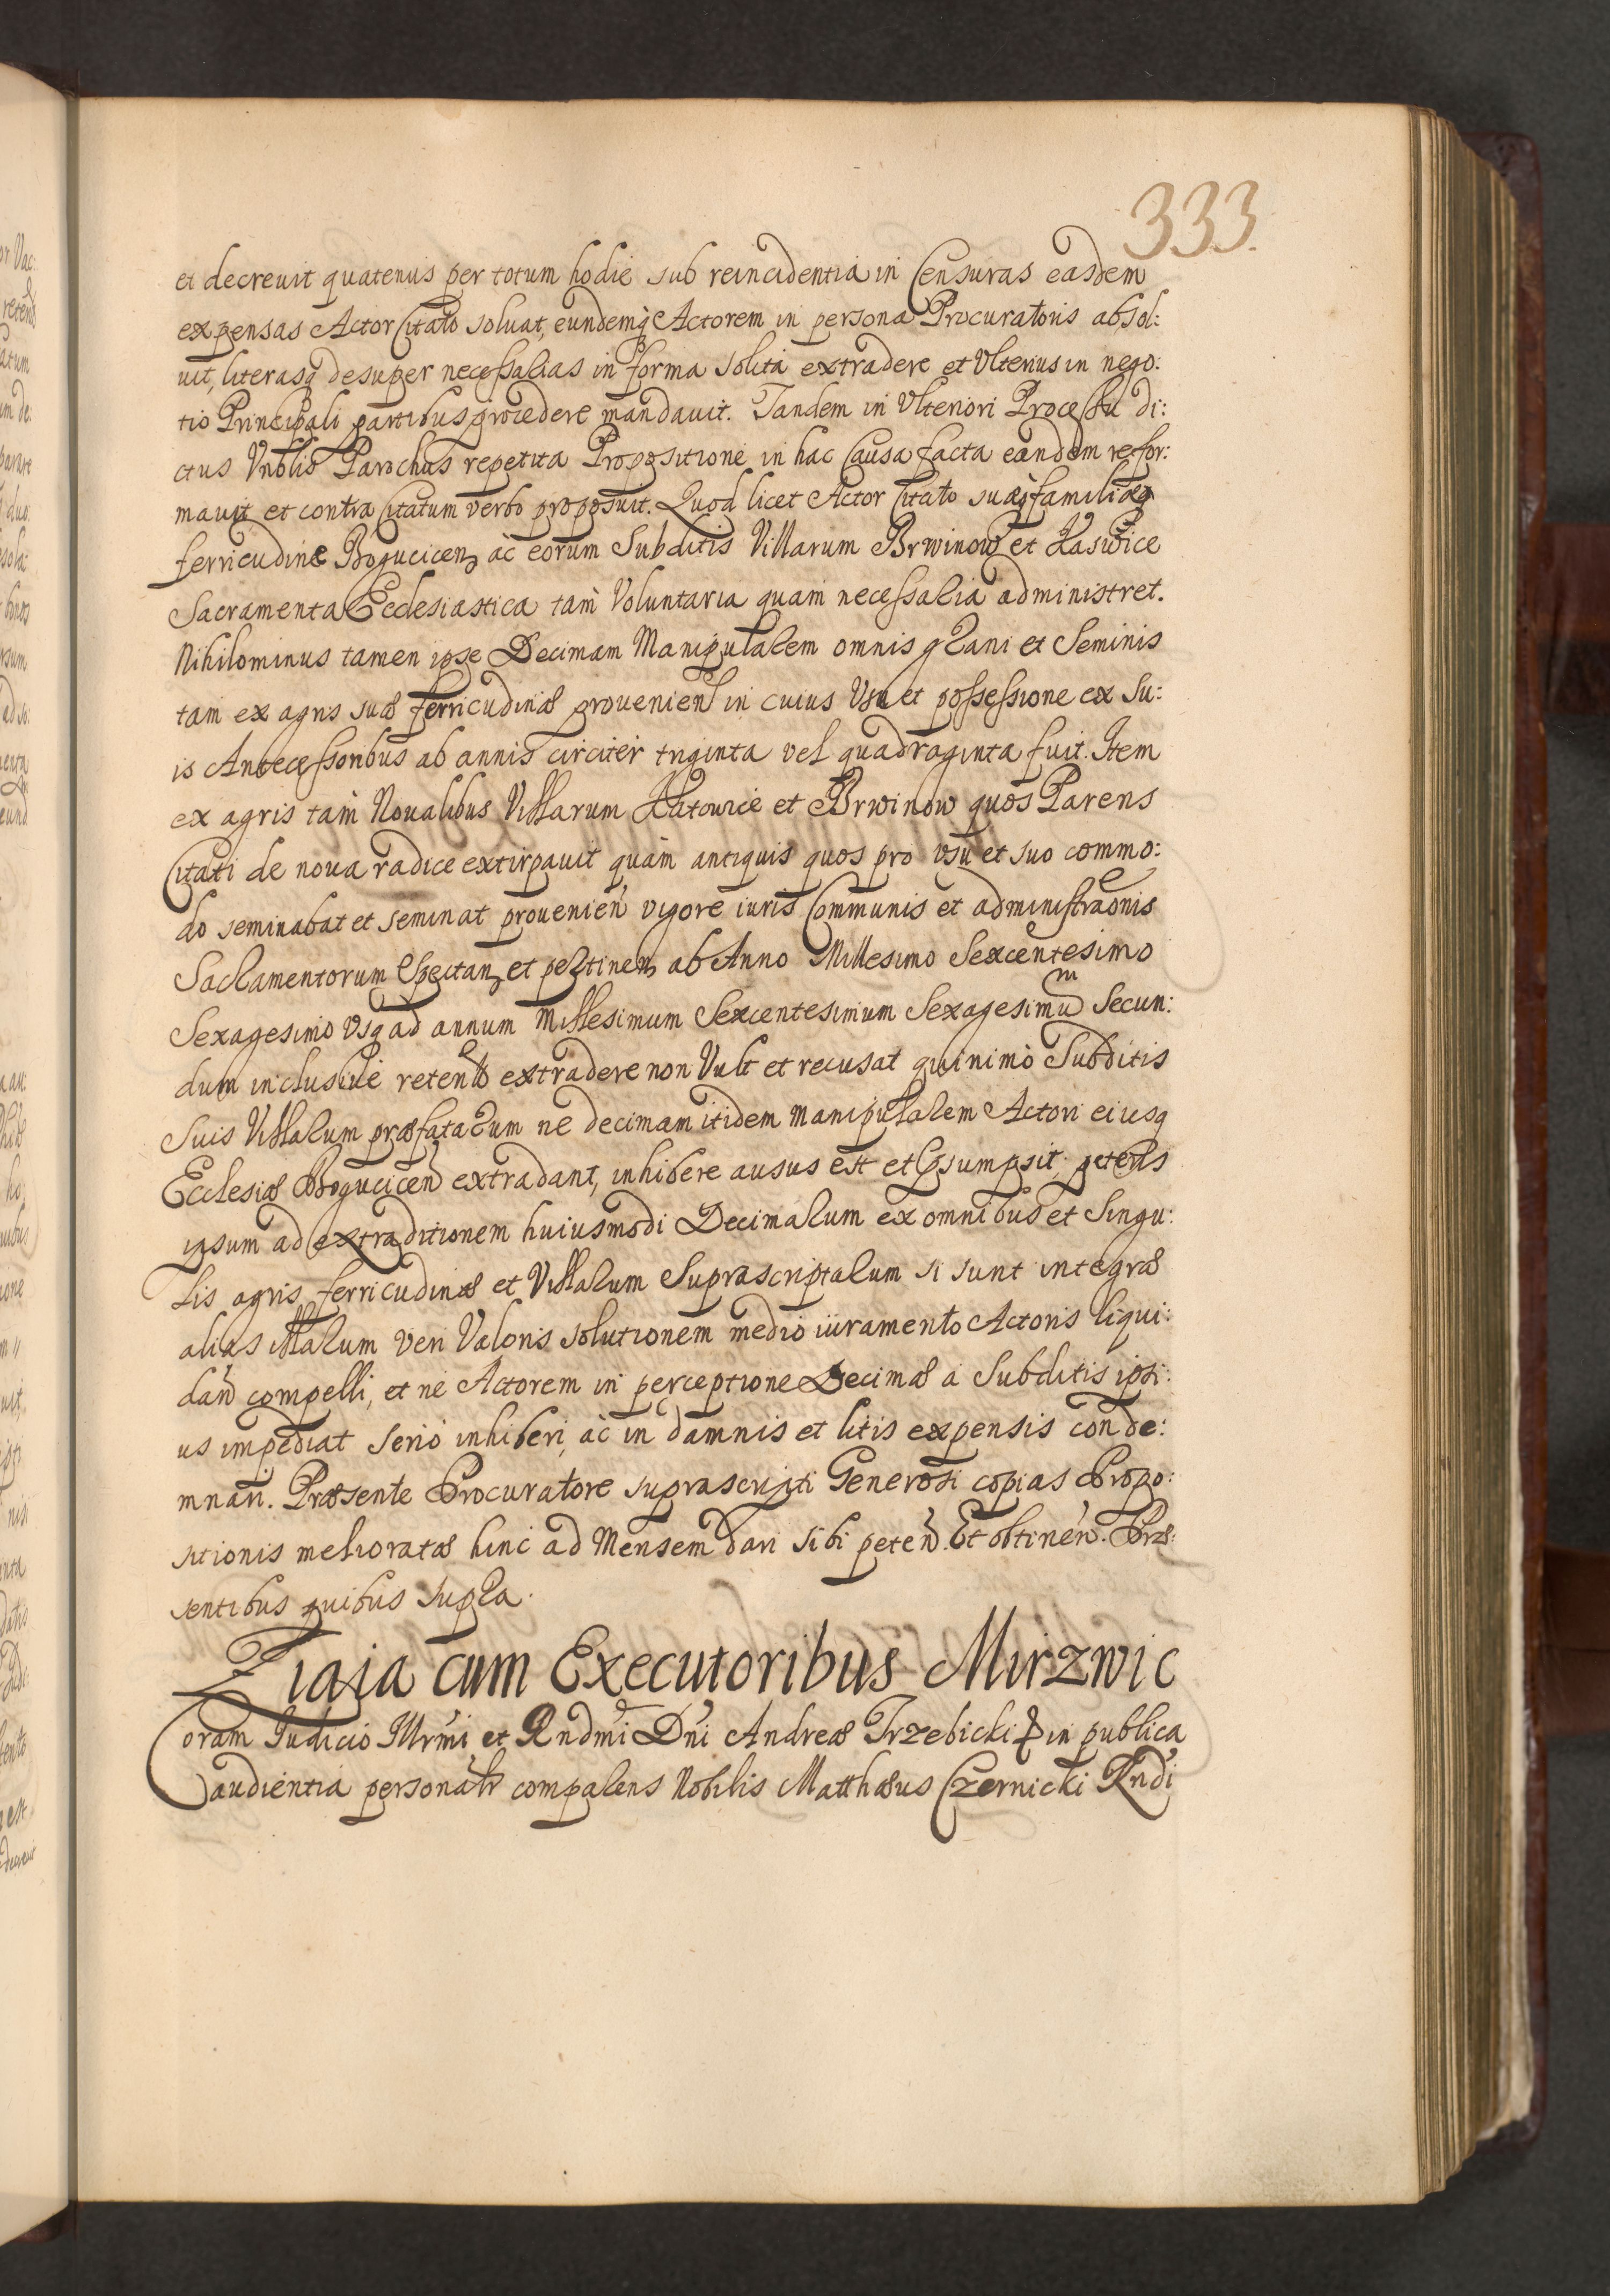 333.
et decreuit quatenus per totum hodie sub reincidentia in Censuras easdem
expensas Actor Citato soluat, eundemq Actorem in persona Procuratoris absol:
uit, literasq desuper necessarias in forma solita extradere et Vlterius in nego:
tio Principali partibus procedere mandauit. Tandem in Vlteriori Processu di:
ctus Vnblis Parochus repetita Propositione in hac Causa facta eandem refor:
mauit et contra Citatum verbo proposuit. Quod licet Actor Citato suaeq familiae
ferricudinae Bogucicen ac eorum Subditis Villarum Brwinow et
Sacramenta Ecclesiastica tam Voluntaria quam necessaria administret.
Nihilominus tamen ipse Decimam Manipularem omnis grani et Seminis
tam ex agris suae ferricudinae prouenien in cuius Vsu et possessione ex su:
is Antecessoribus ab annis circiter triginta vel quadraginta fuit. Item
ex agris tam Noualibus Villarum Katowice et Brwinow quos Parens
Citati de noua radice extirpauit quam antiquis quos pro vsu et suo commo:
do seminabat et seminat prouenien vigore iuris Communis et administraonis
Sacramentorum Spectan et pertinen ab Anno Millesimo Sexcentesimo
Sexagesimo vsq ad annum Millesimum Sexcentesimum Sexagesimum Secun:
dum inclusiue retent extradere non Vult et recusat quinimo Subditis
Suis Villarum praefatarum ne decimam itidem manipularem Actori eiusq
Ecclesiae Bogucicen extradant, inhibere ausus est et psumpsit petens
ipsum ad extraditionem huiusmodi Decimarum ex omnibus et Singu:
lis agris ferricudinae et Villarum Suprascriptarum si sunt integrae
alias illarum veri Valoris solutionem medio iuramento Actoris liqui:
dan compelli, et ne Actorem in perceptione Decimae a Subditis ipsi:
us impediat serio inhiberi, ac in damnis et litis expensis conde:
mnari. Praesente Procuratore suprascripti Generosi copias Propo:
sitionis melioratae hinc ad Mensem dari sibi peten. Et obtinen. Prae:
sentibus quibus supra.
Ziaia cum Executoribus Mirzwic
Coram Iudicio Illrmi et Rndmi Dni Andreae Trzebicki in publica
audientia personalr comparens Nobilis Matthaeus Czernicki Rndi